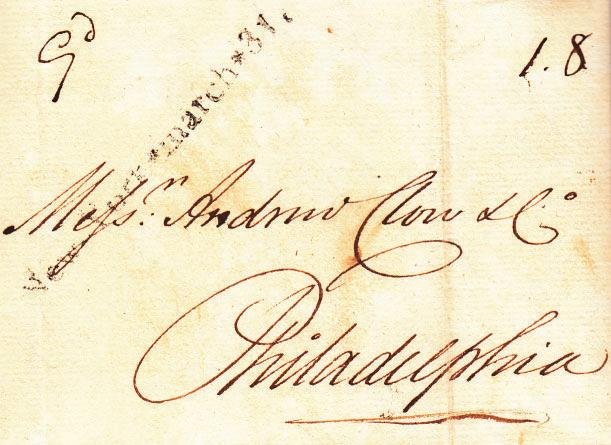 9d
1.8
New-York*march*31.
Messrs. Andrew Clow & Co.
Philadelphia